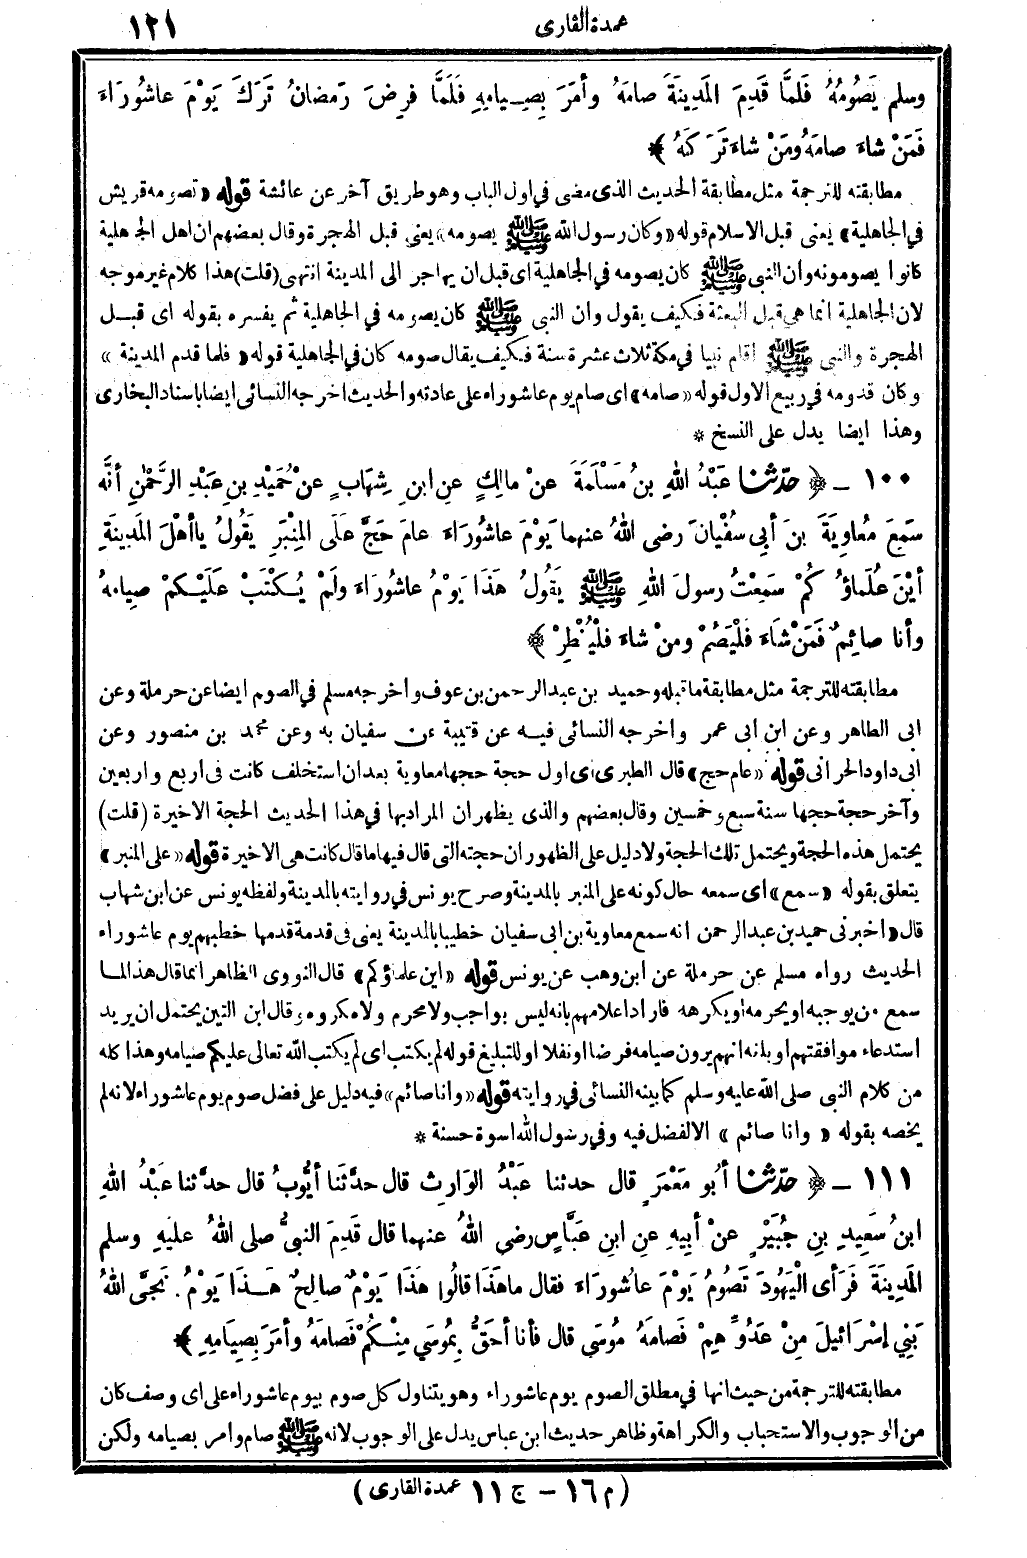 عمدة القارى ١٢١
وسلم يَصُومُهُ فَلَمَّا قَدِمَ المَدِينَةَ صامَهُ وأمَرَ بِصِيامِهِ فَلَمَّا فرِضَ رَمَضانُ تَرَكَ يَوْمَ عاشُورَاءَ
فَمَنْ شاءَ صامَهُ ومَنْ شاءَ تَرَكَهُ ﴾
مطابقته للترجمة مثل مطابقة الحديث الذى مضى فى اول الباب وهو طريق آخر عن عائشة قوله « تصومه قريش
في الجاهلية » يعنى قبل الاسلام قوله « وكان رسول الله ﷺ يصومه » يعنى قبل الهجرة وقال بعضهم ان اهل الجاهلية
كانوا يصومونه وان النبى ﷺ كان يصومه في الجاهلية اى قبل ان يهاجر الى المدينة انتهى (قلت) هذا كلام غير موجه
لان الجاهلية انما هى قبل البعثة فكيف يقول وان النبى ﷺ كان يصومه في الجاهلية ثم يفسره بقوله اى قبل
الهجرة والنبى ﷺ اقام نبيا في مكة ثلاث عشرة سنة فكيف يقال صومه كان في الجاهلية قوله « فلما قدم المدينة »
وكان قدومه في ربيع الاول قوله « صامه » اى صام يوم عاشوراء على عادته والحديث اخرجه النسائى ايضا باسناد البخارى
وهذا ايضا يدل على النسخ *
١٠٠ ـ ﴿ حدّثنا عَبْدُ اللهِ بنُ مَسْلَمَةَ عنْ مالِكٍ عنِ ابنِ شِهَابٍ عنْ حُمَيْدِ بنِ عَبْدِ الرَّحْمٰنِ أنَّهُ
سَمِعَ مُعاوِيَةَ بنَ أبِي سُفْيانَ رضى اللهُ عنهما يَوْمَ عاشُورَاءَ عامَ حَجَّ عَلَى المِنْبَرِ يَقُولُ ياأهْلَ المَدِينَةِ
أيْنَ عُلَماؤُكُمْ سَمِعْتُ رسولَ اللهِ ﷺ يَقُولُ هَذَا يَوْمُ عاشُورَاءَ ولَمْ يُكْتَبْ عَلَيْكمْ صِيامُهُ
وأنا صائِمٌ فَمَنْ شَاءَ فَلْيَصُمْ ومنْ شاءَ فلْيُفْطِرْ ﴾
مطابقته للترجمة مثل مطابقة ما قبله وحميد بن عبد الرحمن بن عوف واخرجه مسلم في الصوم ايضا عن حرملة وعن
ابى الطاهر وعن ابن ابى عمر واخرجه النسائى فيه عن قتيبة عن سفيان به وعن محمد بن منصور وعن
ابى داود الحرانى قوله « عام حج » قال الطبرى اى اول حجة حجها معاوية بعد ان استخلف كانت فى اربع واربعين
وآخر حجة حجها سنة سبع وخمسين وقال بعضهم والذى يظهر ان المراد بها في هذا الحديث الحجة الاخيرة (قلت)
يحتمل هذه الحجة ويحتمل تلك الحجة ولا دليل على الظهور ان حجته التى قال فيها ما قال كانت هى الاخيرة قوله « على المنبر »
يتعلق بقوله « سمع » اى سمعه حال كونه على المنبر بالمدينة وصرح يونس في روايته بالمدينة ولفظه يونس عن ابن شهاب
قال « اخبرنى حميد بن عبد الرحمن انه سمع معاوية بن ابى سفيان خطيبا بالمدينة يعنى فى قدمة قدمها خطبهم يوم عاشوراء
الحديث رواه مسلم عن حرملة عن ابن وهب عن يونس قوله « اين علماؤكم » قال النووى الظاهر انما قال هذا لما
سمع من يوجبه او يحرمه او يكرهه فاراد اعلامهم بانه ليس بواجب ولا محرم ولا مكروه وقال ابن التين يحتمل ان يريد
استدعاء موافقتهم او بلغه انهم يرون صيامه فرضا او نفلا او للتبليغ قوله لم يكتب اى لم يكتب الله تعالى عليكم صيامه وهذا كله
من كلام النبى صلى الله عليه وسلم كما بينه النسائى في روايته قوله « وانا صائم » فيه دليل على فضل صوم يوم عاشوراء لانه لم
يخصه بقوله « وانا صائم » الالفضل فيه وفي رسول الله اسوة حسنة *
١١١ ـ ﴿ حدّثنا أبُو مَعْمَرٍ قال حدثنا عَبْدُ الوَارِثِ قال حدَّثَنَا أيُّوبُ قال حدَّثنا عَبْدُ اللهِ
ابنُ سَعِيدِ بنِ جُبَيْرٍ عنْ أبِيهِ عنِ ابنِ عَبَّاسٍ رضى اللهُ عنهما قال قَدِمَ النبىُّ صلى اللهُ عليْهِ وسلم
المَدِينَةَ فَرَأى الْيَهُودَ تَصُومُ يَوْمَ عاشُورَاءَ فقال ماهَذَا قالُوا هَذَا يَوْمٌ صالِحٌ هَذَا يَوْمُ نَجَّى اللهُ
بَنِي إسْرَائيلَ مِنْ عَدُوِّهِمْ فَصامَهُ مُوسَى قال فأنا أحَقُّ بِمُوسَي مِنْكُمْ فَصَامَهُ وأمَرَ بِصِيَامِهِ ﴾
مطابقته للترجمة من حيث انها في مطلق الصوم يوم عاشوراء وهو يتناول كل صوم بيوم عاشوراء على اى وصف كان
من الوجوب والاستحباب والكراهة وظاهر حديث ابن عباس يدل على الوجوب لانه ﷺ صام وامر بصيامه ولكن
(م ١٦ ـ ج ١١ عمدة القارى)